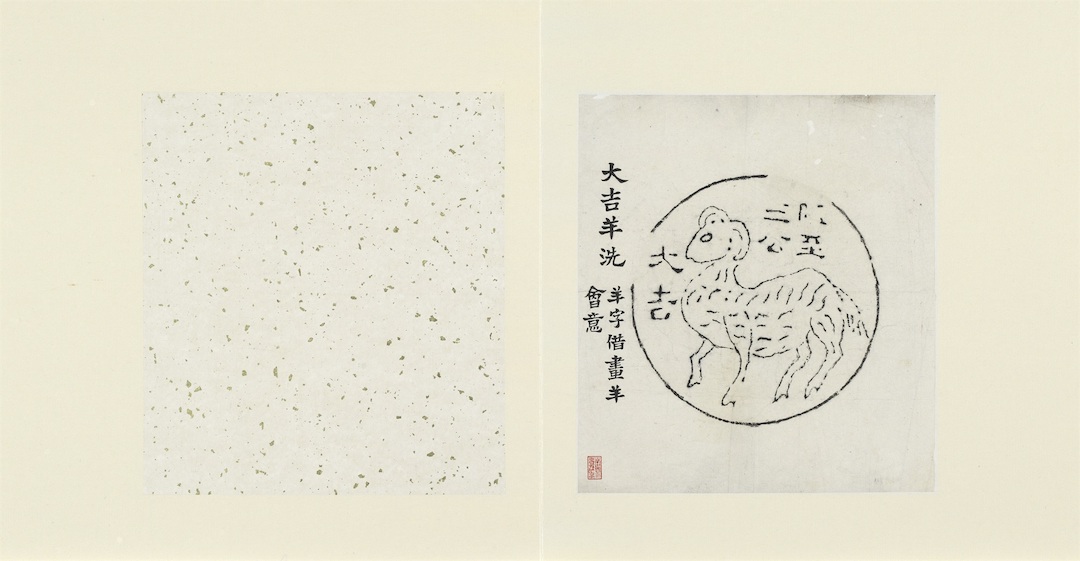 至
三公
大吉
大吉羊洗
羊字借畫羊
會意